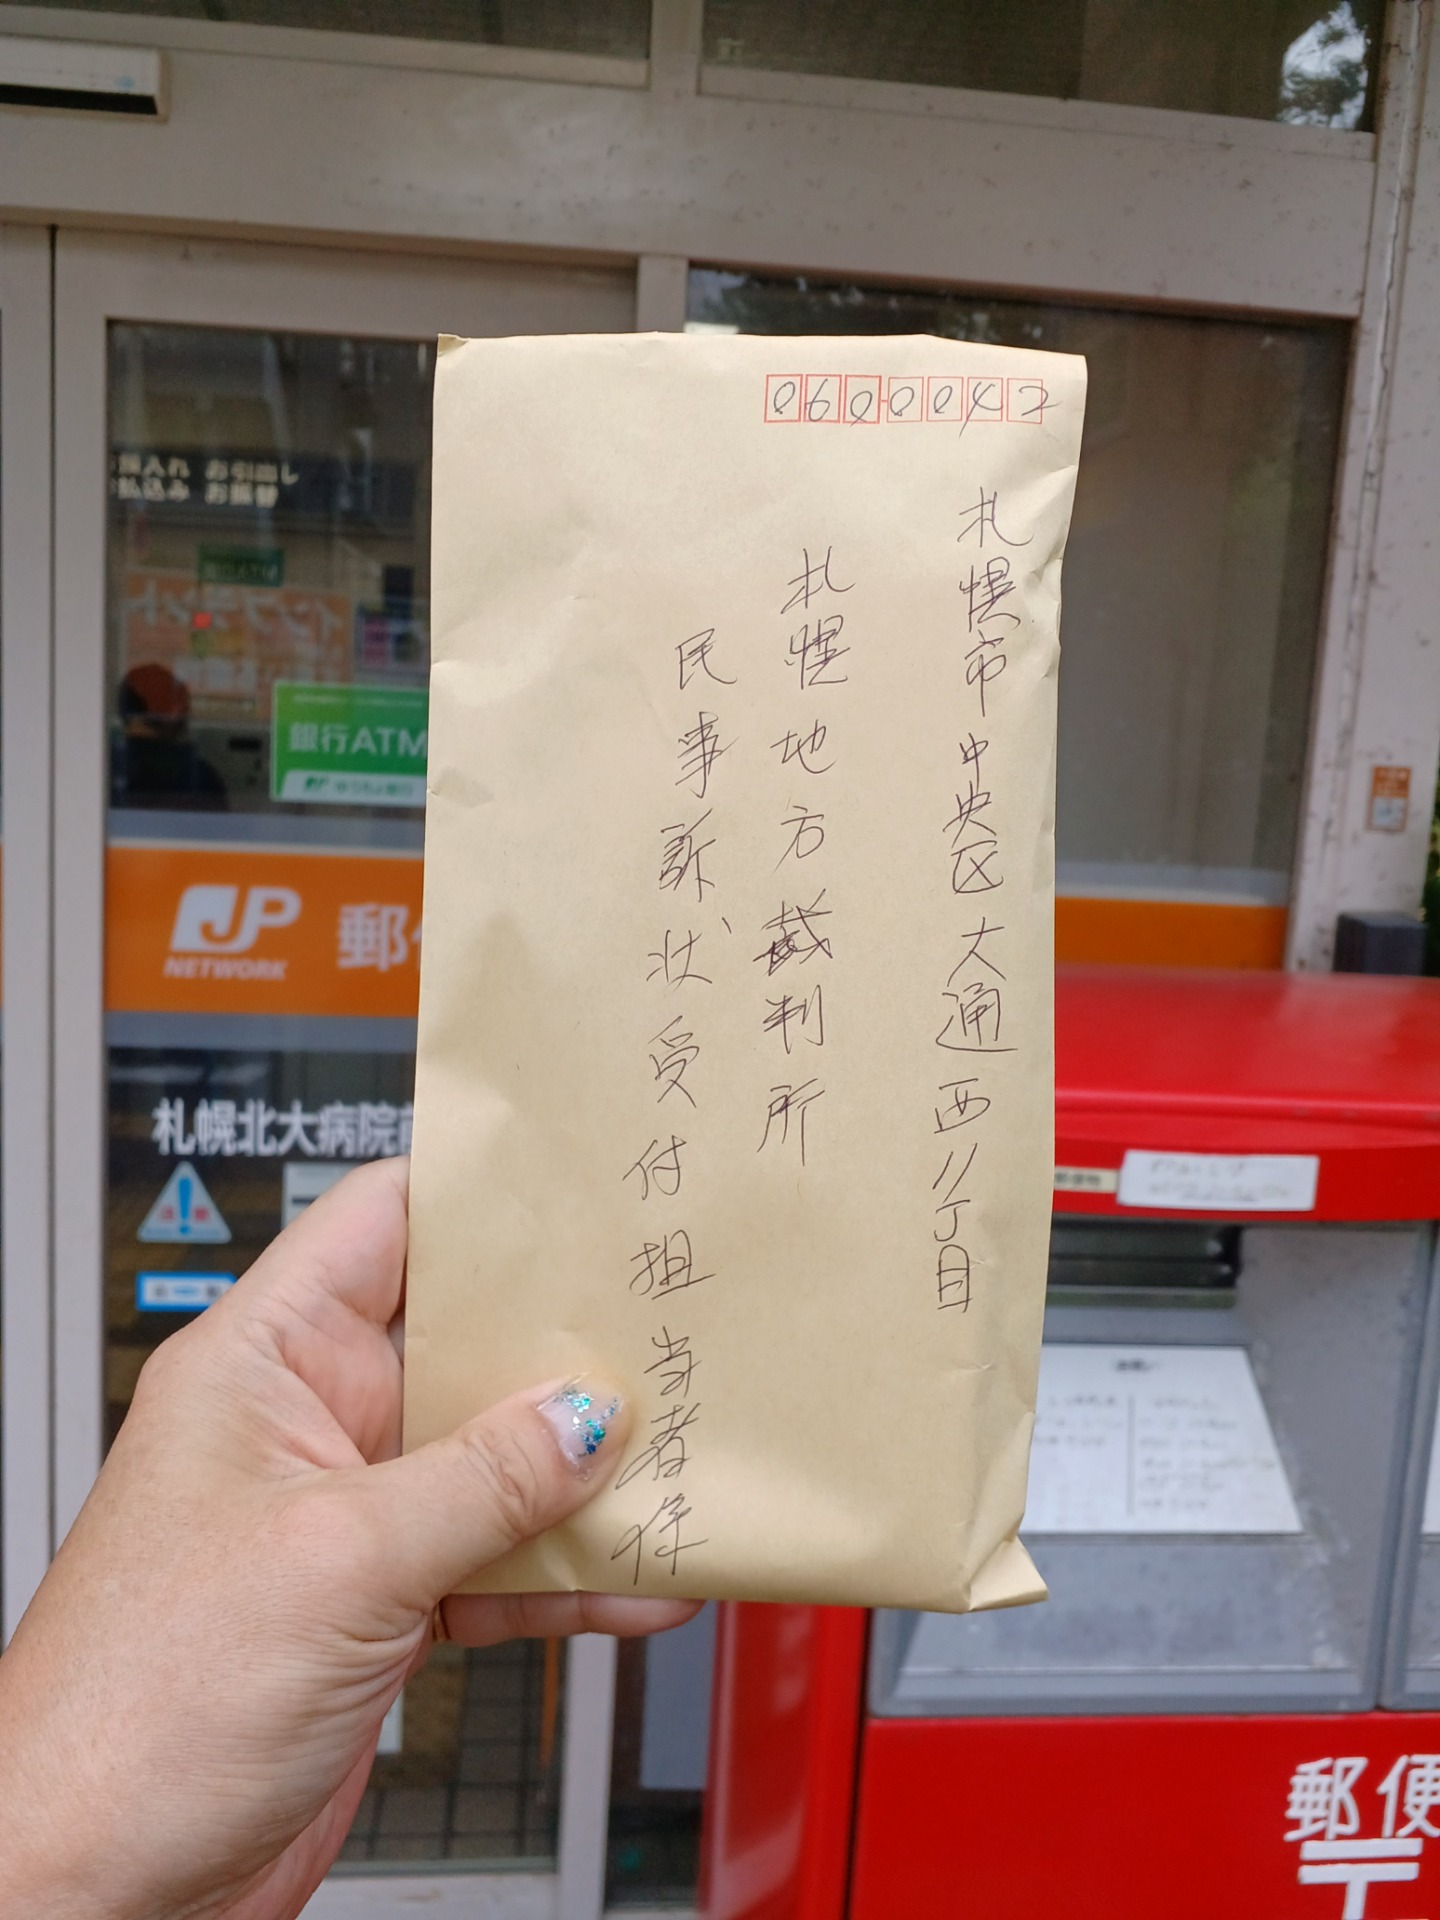 0600042
札幌市中央区大通西11丁目
札幌地方裁判所
民事訴状受付担当者係
お引出し
お振替
銀行ATM
ゆうちょ銀行
JP
NETWORK
郵
札幌北大病院前
郵便
〒